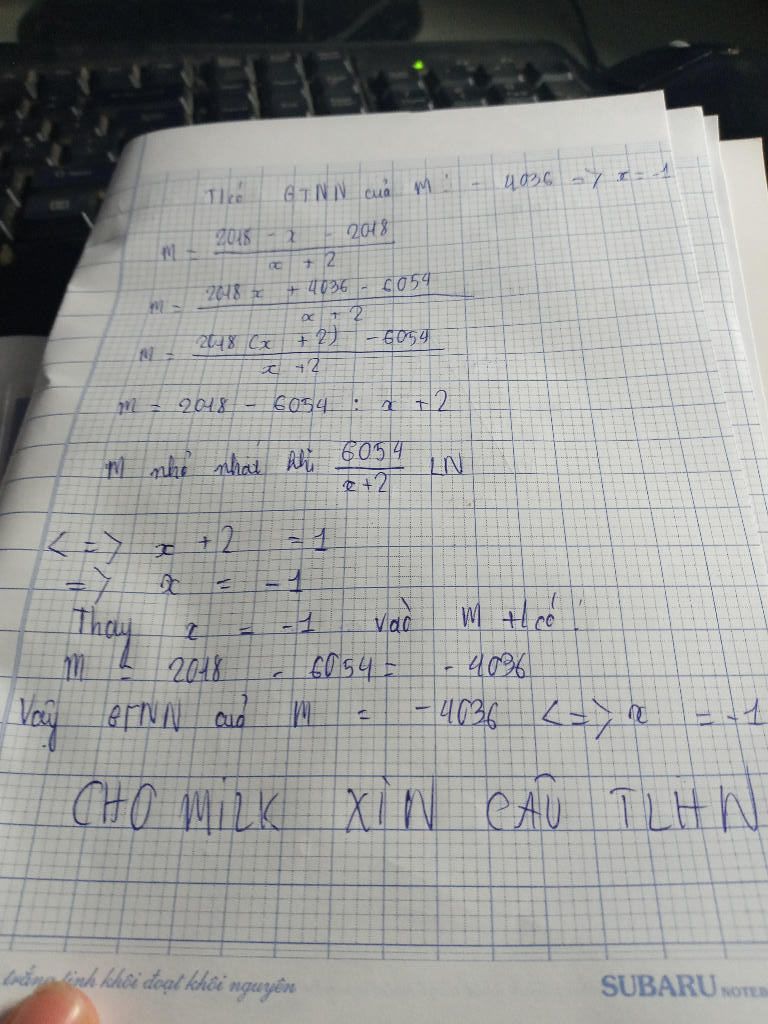 T/có GTNN của M : - 4036 => x = -1
M = 2018 - x - 2018 / x + 2
M = 2018 x + 4036 - 6054 / x + 2
M = 2018 (x + 2) - 6054 / x + 2
M = 2018 - 6054 : x + 2
M nhỏ nhất khi 6054 / x+2 LN
<=> x + 2 = 1
=> x = -1
Thay x = -1 vào M t/có :
M = 2018 - 6054 = - 4036
Vậy GTNN của M = -4036 <=> x = -1
CHO MILK XÌN CÂU TLHN
trắng tinh khôi đoạt khôi nguyên
SUBARU NOTEB